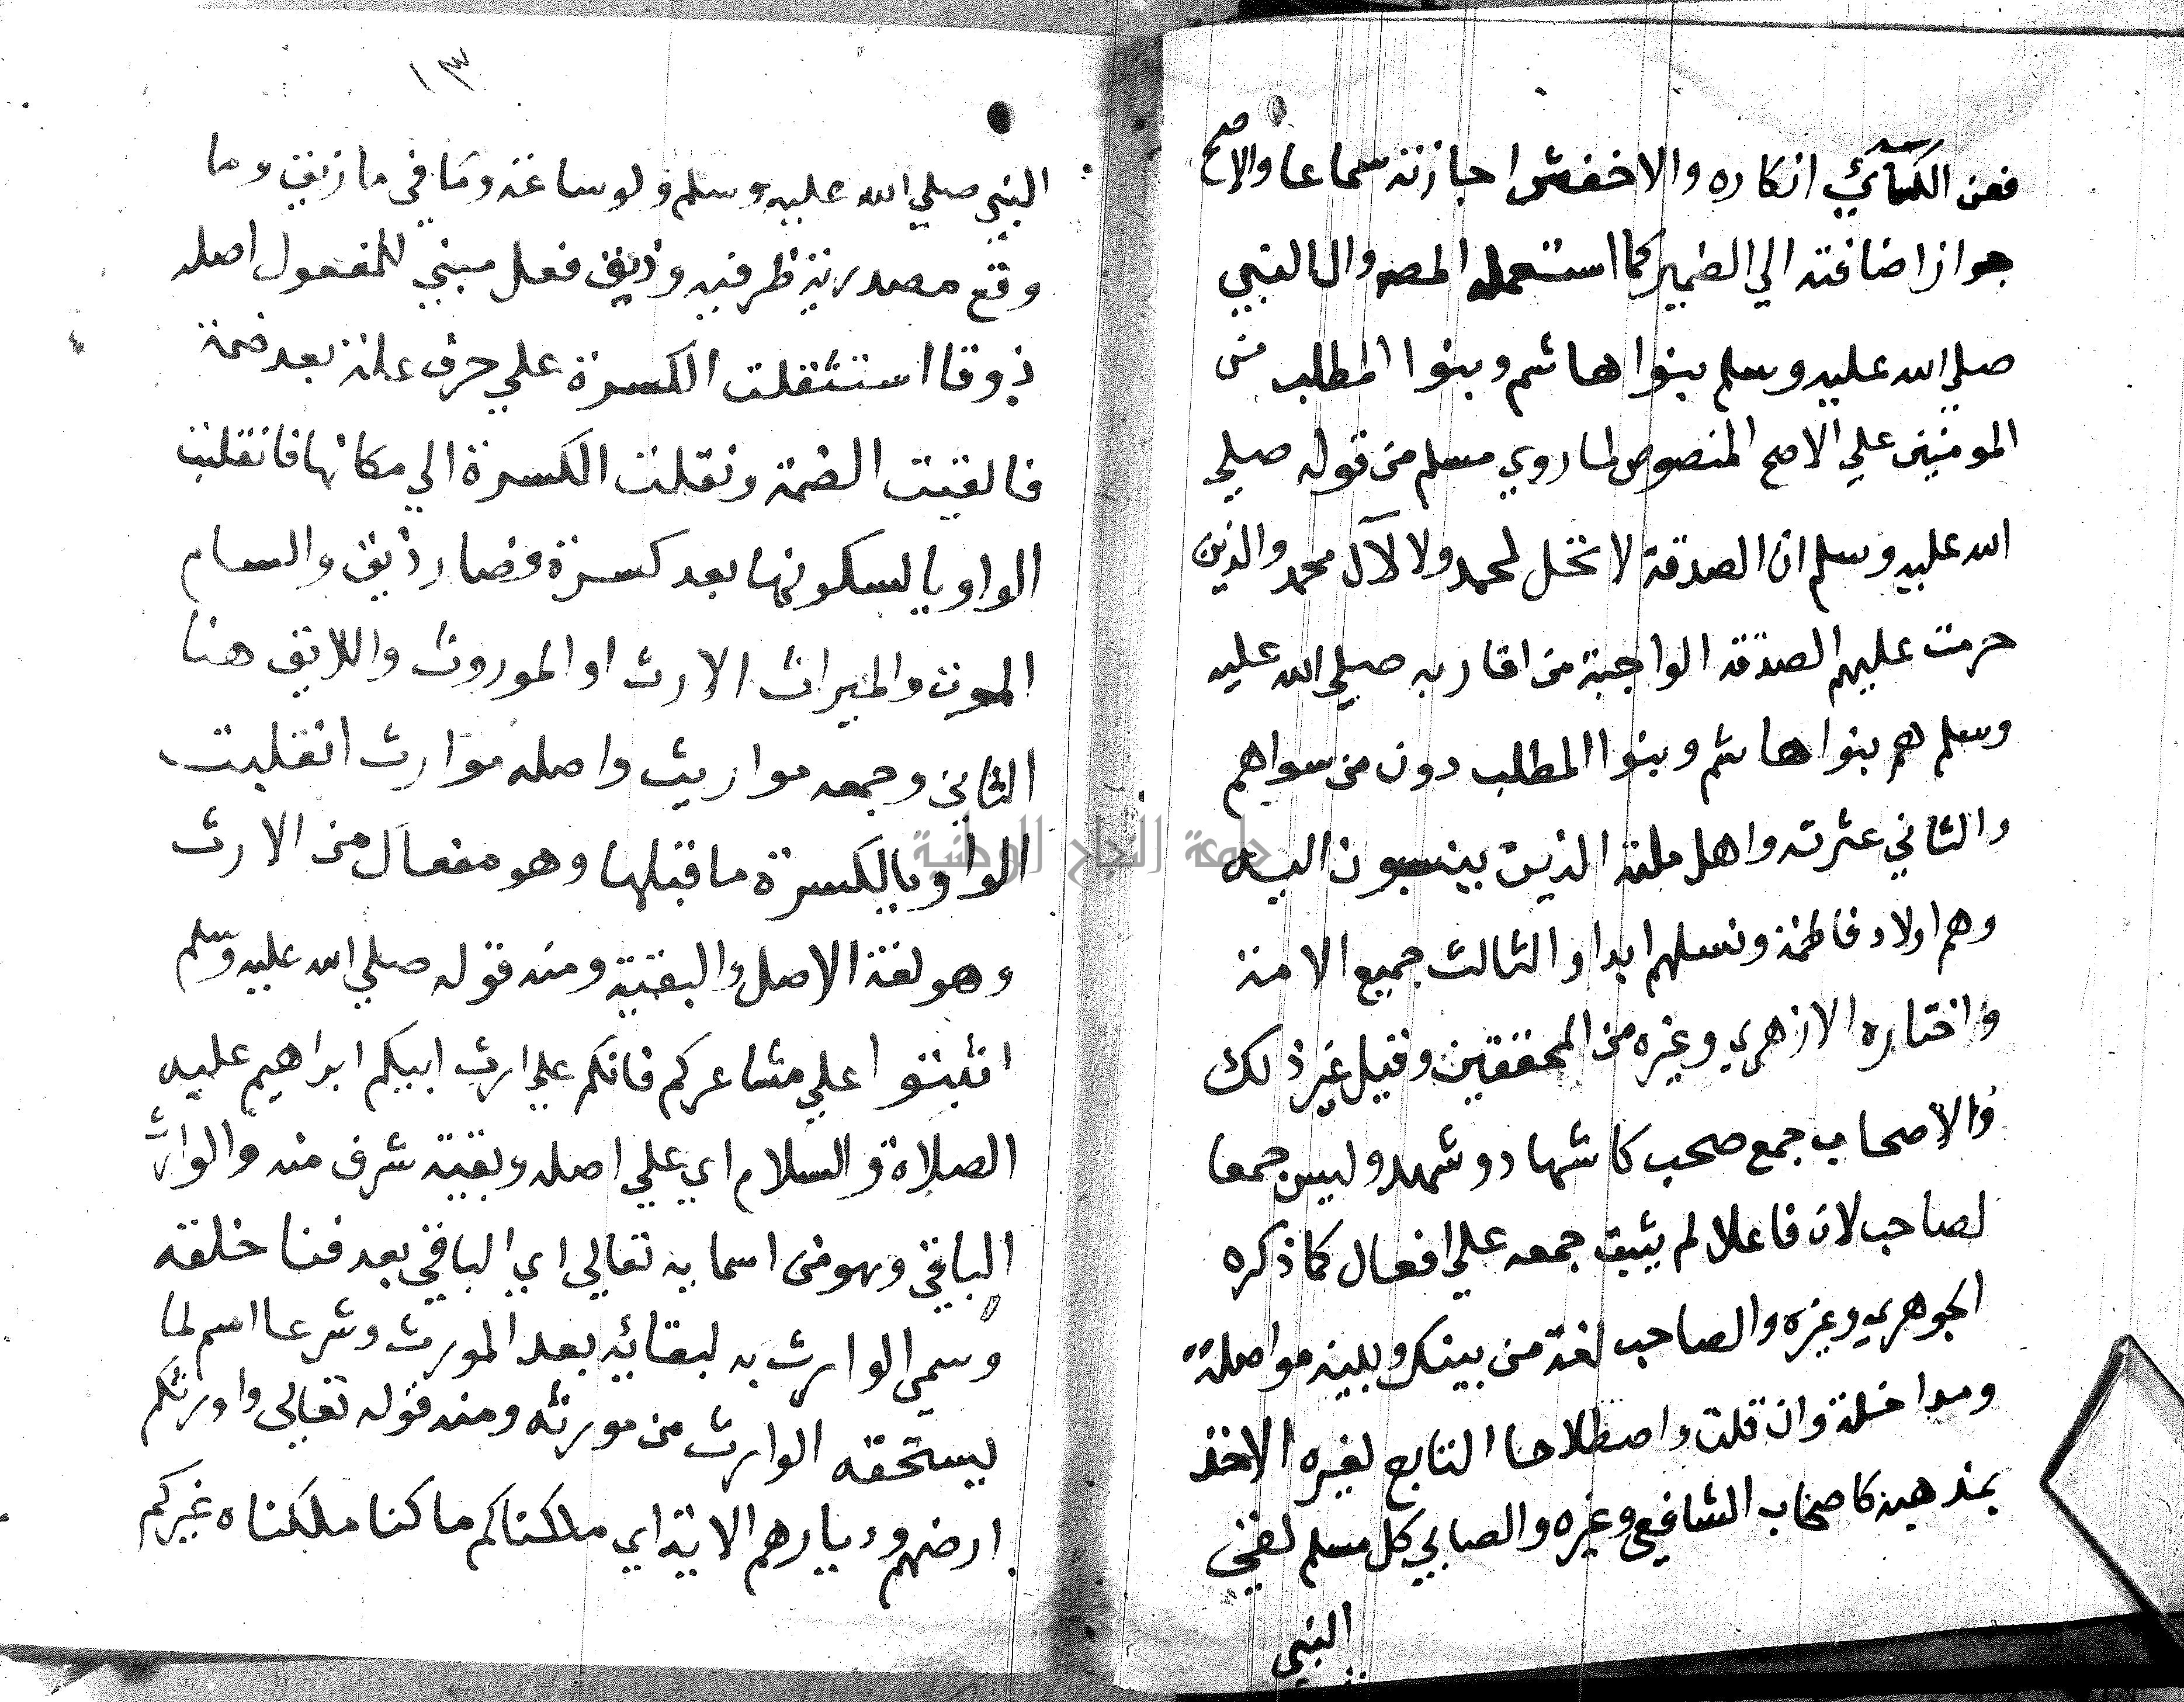 فعن الكسائي انكاره والاخفش اجازته سماعا والاصح
جواز اضافته الي الضمير كما استعمله المصه وال النبي
صلي الله عليه وسلم بنوا هاشم وبنوا المطلب من
المومنين علي الاصح المنصوص لما روي مسلم من قوله صلي
الله عليه وسلم ان الصدقة لا تحل لمحمد ولا لآل محمد والذين
حرمت عليهم الصدقة الواجبة من اقاربه صلي الله عليه
وسلم هم بنوا هاشم وبنوا المطلب دون من سواهم
والثاني عثرته واهل ملته الذين ينسبون اليه
وهم اولاد فاطمة ونسلهم ابدا والثالث جميع الامة
واختاره الازهري وغيره من المحققين وقيل غير ذلك
والاصحاب جمع صحب كاشهاد وشهد وليس جمعا
لصاحب لان فاعلا لم يثبت جمعه علي افعال كما ذكره
الجوهري وغيره والصاحب لغة من بينك وبينه مواصلة
ومداخلة وان قلت واصطلاحا التابع لغيره الاخذ
بمذهبه كاصحاب الشافعي وغيره والصابي كل مسلم لقي
النبي
١٣
النبي صلي الله عليه وسلم ولو ساعة وما في ما زيق وما
وقع مصدرية ظرفيه وذيق فعل مبني للمفعول اصله
ذوقا استثقلت الكسرة علي حرف علة بعد ضمة
فالقيت الضمة ونقلت الكسرة الي مكانها فانقلبت
الواو يا لسكونها بعد كسرة فصار ذيق والسام
الموت والميراث الارث او الموروث واللايق هنا
الثاني وجمعه مواريث واصله موارث انقلبت
الواو يا لكسرة ما قبلها وهو مفعال من الارث
وهو لغة الاصل والبقية ومنه قوله صلي الله عليه وسلم
اثبتوا علي مشاعركم فانكم علي ارث ابيكم ابراهيم عليه
الصلاة والسلام اي علي اصله وبقية شرف منه والوارث
الباقي وهو من اسمايه تعالي اي الباقي بعد فنا خلقه
وسمي الوارث به لبقائه بعد المورث وشرعا اسم لما
يستحقه الوارث من مورثه ومنه قوله تعالي واورثكم
ارضهم وديارهم الاية اي ملكناكم ما كنا ملكناه غيركم
جامعة النجاح الوطنية